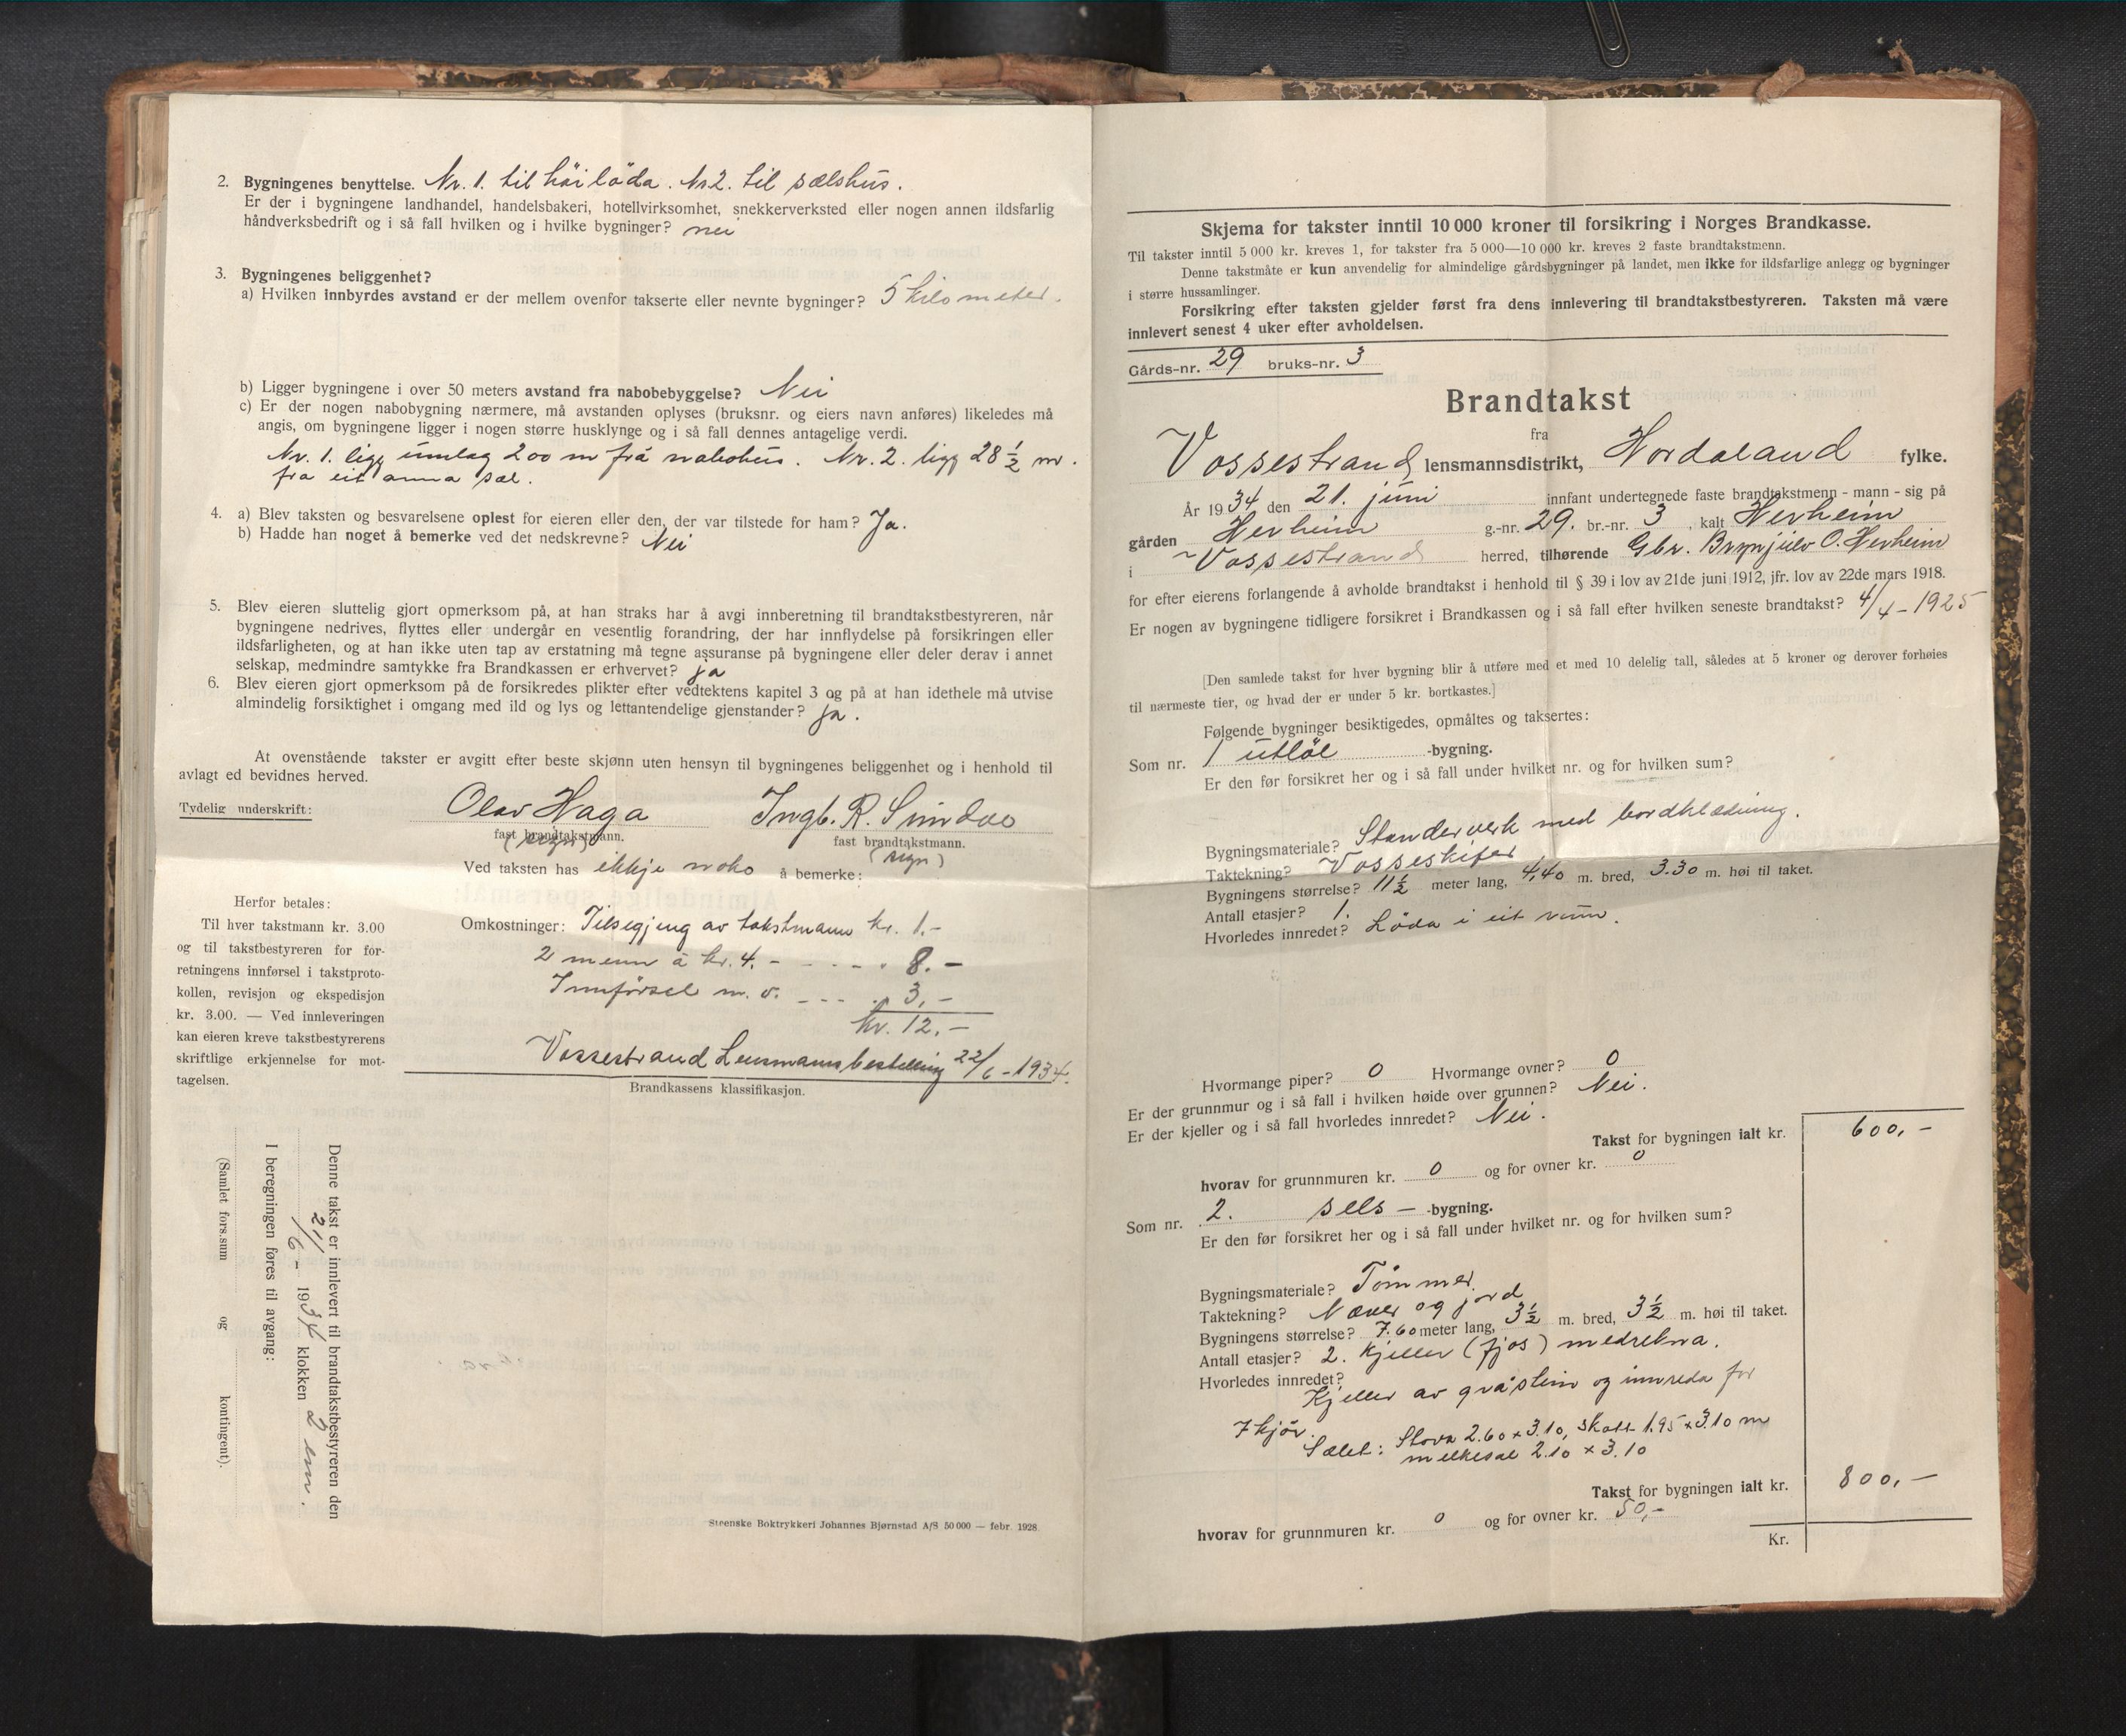 2. Bygningenes benyttelse. Nr. 1. til höilöda. Nr 2. til sælshus.
Er der i bygningene landhandel, handelsbakeri, hotellvirksomhet, snekkerverksted eller nogen annen ildsfarlig
håndverksbedrift og i så fall hvilken og i hvilke bygninger? nei
3. Bygningenes beliggenhet?
a) Hvilken innbyrdes avstand er der mellem ovenfor takserte eller nevnte bygninger? 5 kilometer.
b) Ligger bygningene i over 50 meters avstand fra nabobebyggelse? Nei
c) Er der nogen nabobygning nærmere, må avstanden oplyses (bruksnr. og eiers navn anføres) likeledes må
angis, om bygningene ligger i nogen større husklynge og i så fall dennes antagelige verdi.
Nr. 1. ligg umlag 200 m frå nabohus. Nr. 2. ligg 28 1/2 m.
frå eit anna sæl.
4. a) Blev taksten og besvarelsene oplest for eieren eller den, der var tilstede for ham? Ja.
b) Hadde han noget å bemerke ved det nedskrevne? Nei
5. Blev eieren sluttelig gjort opmerksom på, at han straks har å avgi innberetning til brandtakstbestyreren, når
bygningene nedrives, flyttes eller undergår en vesentlig forandring, der har innflydelse på forsikringen eller
ildsfarligheten, og at han ikke uten tap av erstatning må tegne assuranse på bygningene eller deler derav i annet
selskap, medmindre samtykke fra Brandkassen er erhvervet? ja
6. Blev eieren gjort opmerksom på de forsikredes plikter efter vedtektens kapitel 3 og på at han idethele må utvise
almindelig forsiktighet i omgang med ild og lys og lettantendelige gjenstander? ja.
At ovenstående takster er avgitt efter beste skjønn uten hensyn til bygningenes beliggenhet og i henhold til
avlagt ed bevidnes herved.
Tydelig underskrift: Olav Haga Ingb. R. Sundve
fast brandtakstmann. fast brandtakstmann.
(sign) (sign)
Ved taksten has ikkje noko å bemerke:
Herfor betales:
Til hver takstmann kr. 3.00
og til takstbestyreren for for-
retningens innførsel i takstproto-
kollen, revisjon og ekspedisjon
kr. 3.00. — Ved innleveringen
kan eieren kreve takstbestyrerens
skriftlige erkjennelse for mot-
tagelsen.
Omkostninger: Tilsegjing av takstmann kr. 1.-
2 menn à kr. 4. - - - - . 8. -
Innförsel m. v. - - - . 3. -
kr. 12. -
Vossestrand Lensmannsbestelling 22/6 - 1934.
Brandkassens klassifikasjon.
Denne takst er innlevert til brandtakstbestyreren den
21/6 - 1934 klokken 2 em.
I beregningen føres til avgang:
(Samlet fors.sum og kontingent).
Steenske Boktrykkeri Johannes Bjørnstad A/S 50 000 — febr. 1928.
Skjema for takster inntil 10 000 kroner til forsikring i Norges Brandkasse.
Til takster inntil 5 000 kr. kreves 1, for takster fra 5 000—10 000 kr. kreves 2 faste brandtakstmenn.
Denne takstmåte er kun anvendelig for almindelige gårdsbygninger på landet, men ikke for ildsfarlige anlegg og bygninger
i større hussamlinger.
Forsikring efter taksten gjelder først fra dens innlevering til brandtakstbestyreren. Taksten må være
innlevert senest 4 uker efter avholdelsen.
Gårds-nr. 29 bruks-nr. 3
Brandtakst
fra
Vossestrand lensmannsdistrikt, Hordaland fylke.
År 1934 den 21. juni innfant undertegnede faste brandtakstmenn - mann - sig på
gården Herheim g.-nr. 29. br.-nr. 3, kalt Herheim
i Vossestrand herred, tilhørende Gbr. Brynjulv O. Herheim
for efter eierens forlangende å avholde brandtakst i henhold til § 39 i lov av 21de juni 1912, jfr. lov av 22de mars 1918.
Er nogen av bygningene tidligere forsikret i Brandkassen og i så fall efter hvilken seneste brandtakst? 4/4 - 1925
[Den samlede takst for hver bygning blir å utføre med et med 10 delelig tall, således at 5 kroner og derover forhøies
til nærmeste tier, og hvad der er under 5 kr. bortkastes.]
Følgende bygninger besiktigedes, opmåltes og taksertes:
Som nr. 1 utlöe -bygning.
Er den før forsikret her og i så fall under hvilket nr. og for hvilken sum?
Bygningsmateriale? Standerverk med bordklædning.
Taktekning? Vosseskifer
Bygningens størrelse? 11 1/2 meter lang, 4,40 m. bred, 3.30 m. høi til taket.
Antall etasjer? 1.
Hvorledes innredet? Löda i eit rum.
Hvormange piper? 0 Hvormange ovner? 0
Er der grunnmur og i så fall i hvilken høide over grunnen? Nei.
Er der kjeller og i så fall hvorledes innredet? Nei.
Takst for bygningen ialt kr. 600, -
hvorav for grunnmuren kr. 0 og for ovner kr. 0
Som nr. 2. sels — -bygning.
Er den før forsikret her og i så fall under hvilket nr. og for hvilken sum?
Bygningsmateriale? Tømmer
Taktekning? Næver og jord
Bygningens størrelse? 7.60 meter lang, 3 1/2 m. bred, 3 1/2 m. høi til taket.
Antall etasjer? 2. Kjeller (fjos) medrekna.
Hvorledes innredet?
Kjeller av gråstein og innreda for
7 kjör.
Sælet: Stova 2.60 x 3.10, skott 1.95 x 3.10 m
melkesæl 2.10 x 3.10
Takst for bygningen ialt kr. 800, -
hvorav for grunnmuren kr. 0 og for ovner kr. 50, -
Kr.